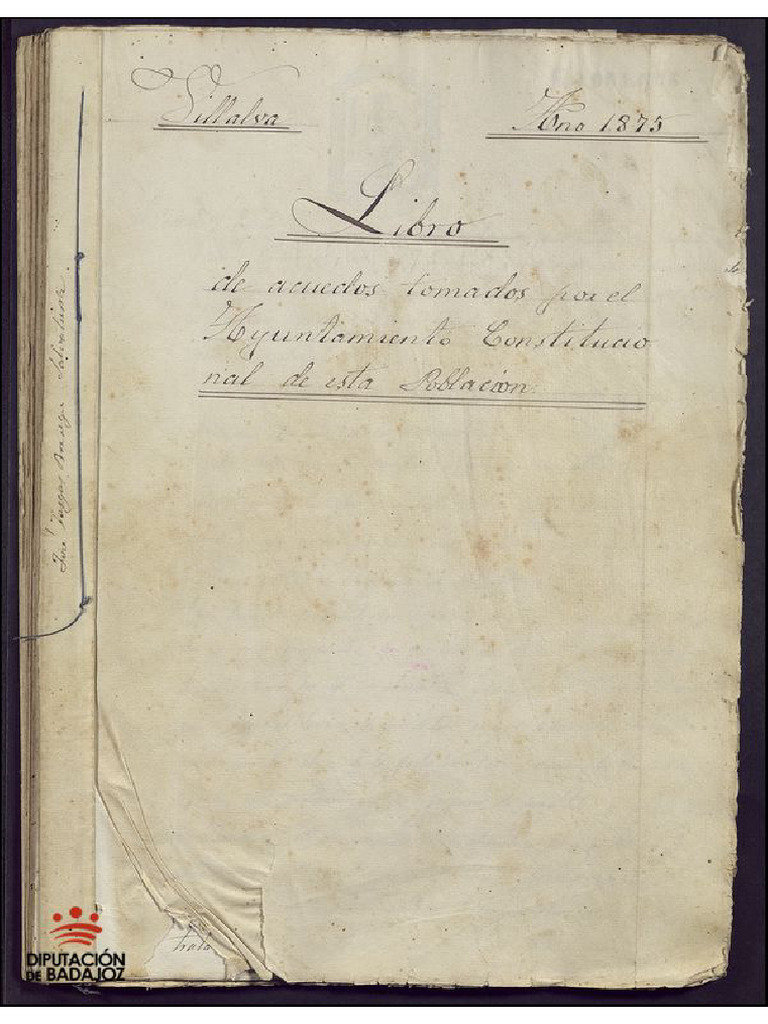 Villalva
Año 1875
Libro
de acuedos tomados por el
Ayuntamiento Constitucio
nal de esta Poblacion.
José Vargas
trato
DIPUTACIÓN
DE BADAJOZ